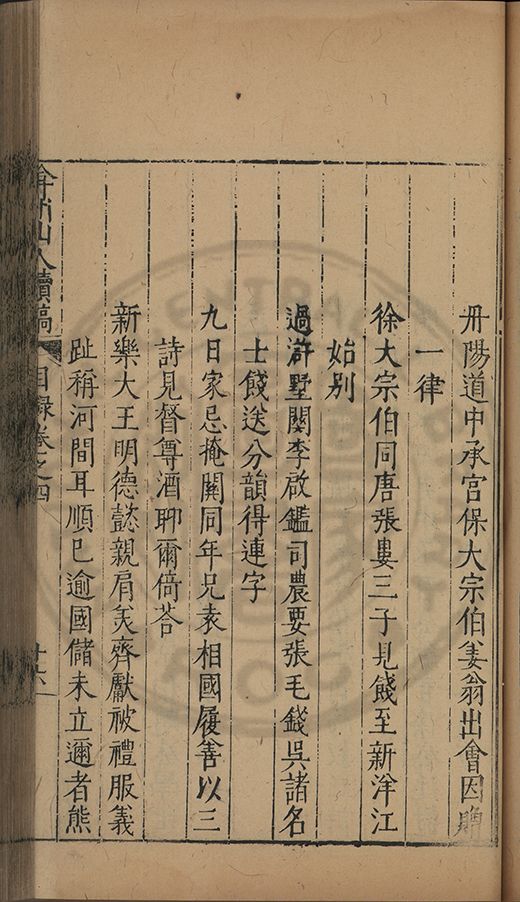 丹陽道中承宮保大宗伯姜翁出會因贈
一律
徐大宗伯同唐張婁三子見餞至新洋江
始別
過滸墅關李啟鑑司農要張毛錢吳諸名
士餞送分韻得連字
九日家忌掩關同年兄袁相國履善以三
詩見督尊酒聊爾倚荅
新樂大王明德懿親肩羙齊獻被禮服義
趾稱河間耳順巳逾國儲未立邇者熊
弇州山人續稿
目錄卷之四
廿六